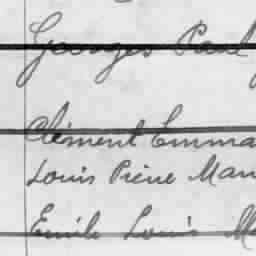 Georges Paul
Clément Emma
Louis Pierre Mau
Emile Louis M